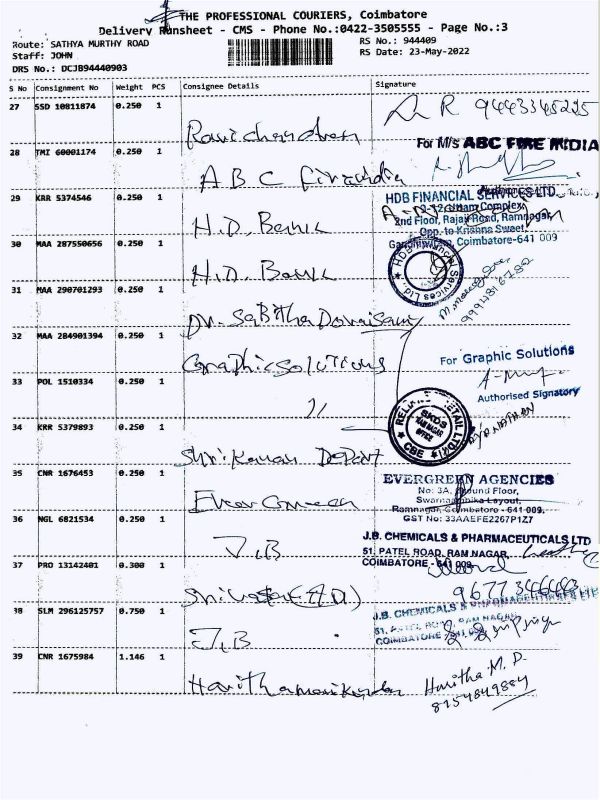 THE PROFESSIONAL COURIERS, Coimbatore
Delivery Runsheet - CMS - Phone No.:0422-3505555 - Page No.:3
Route: SATHYA MURTHY ROAD RS No.: 944409
Staff: JOHN RS Date: 23-May-2022
DRS No.: DCJB94440903
S No Consignment No Weight PCS Consignee Details Signature
27 SSD 10811874 0.250 1 Ravichandran R 9443345225
28 TMI 60001174 0.250 1 A B C For M/s ABC FIRE INDIA
29 KRR 5374546 0.250 1 H.D. Bank HDB FINANCIAL SERVICES LTD.,
2nd Floor, Rajaji Road, Ramnagar,
Opp. to Krishna Sweet
30 MAA 287550656 0.250 1 H.D. Bank Coimbatore-641 009
HDB Financial Services Ltd.
31 MAA 290701293 0.250 1 Dr. Sabitha Doraisamy
32 MAA 284901394 0.250 1 Graphic Solutions For Graphic Solutions
33 POL 1510334 0.250 1 11 Authorised Signatory
RELIANCE RETAIL LTD
RAM NAGAR
OFFICE
CBE
34 KRR 5379893 0.250 1 Shri Kannan Depart
35 CNR 1676453 0.250 1 Ever Green EVERGREEN AGENCIES
No: 3A, Ground Floor,
Swarnambika Layout,
Ramnagar, Coimbatore - 641 009.
GST No: 33AAEFE2267P1Z7
36 NGL 6821534 0.250 1 J.B J.B. CHEMICALS & PHARMACEUTICALS LTD
51. PATEL ROAD, RAM NAGAR,
COIMBATORE - 641 009
37 PRO 13142401 0.300 1
38 SLM 296125757 0.750 1 J.B J.B. CHEMICALS & PHARMACEUTICALS LTD
51. PATEL ROAD, RAM NAGAR
COIMBATORE - 641 009
39 CNR 1675984 1.146 1 Harithamanikandan Haritha M. D.
8754849884